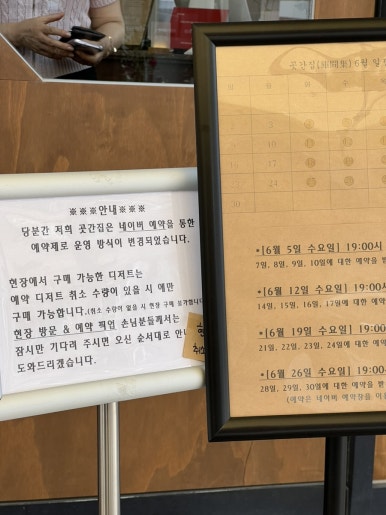 ※※※안내※※※
당분간 저희 곳간집은 네이버 예약을 통한
예약제로 운영 방식이 변경되었습니다.
현장에서 구매 가능한 디저트는
예약 디저트 취소 수량이 있을 시 에만
구매 가능합니다.(취소 수량이 없을 시 현장 구매 불가합니다
현장 방문 & 예약 찍인 손님분들께서는
잠시만 기다려 주시면 오신 순서대로 안
도와드리겠습니다.
취소
6월
*[6월 5일 수요일] 19:00시
7일, 8일, 9일, 10일에 대한 예약을 받
*[6월 12일 수요일] 19:00
14일, 15일, 16일, 17일에 대한 예약을
*[6월 19일 수요일] 19:00
21일, 22일, 23일, 24일에 대한 예약을
*[6월 26일 수요일] 19:00-
28일, 29일, 30일에 대한 예약을 받
(예약은 네이버 예약창을